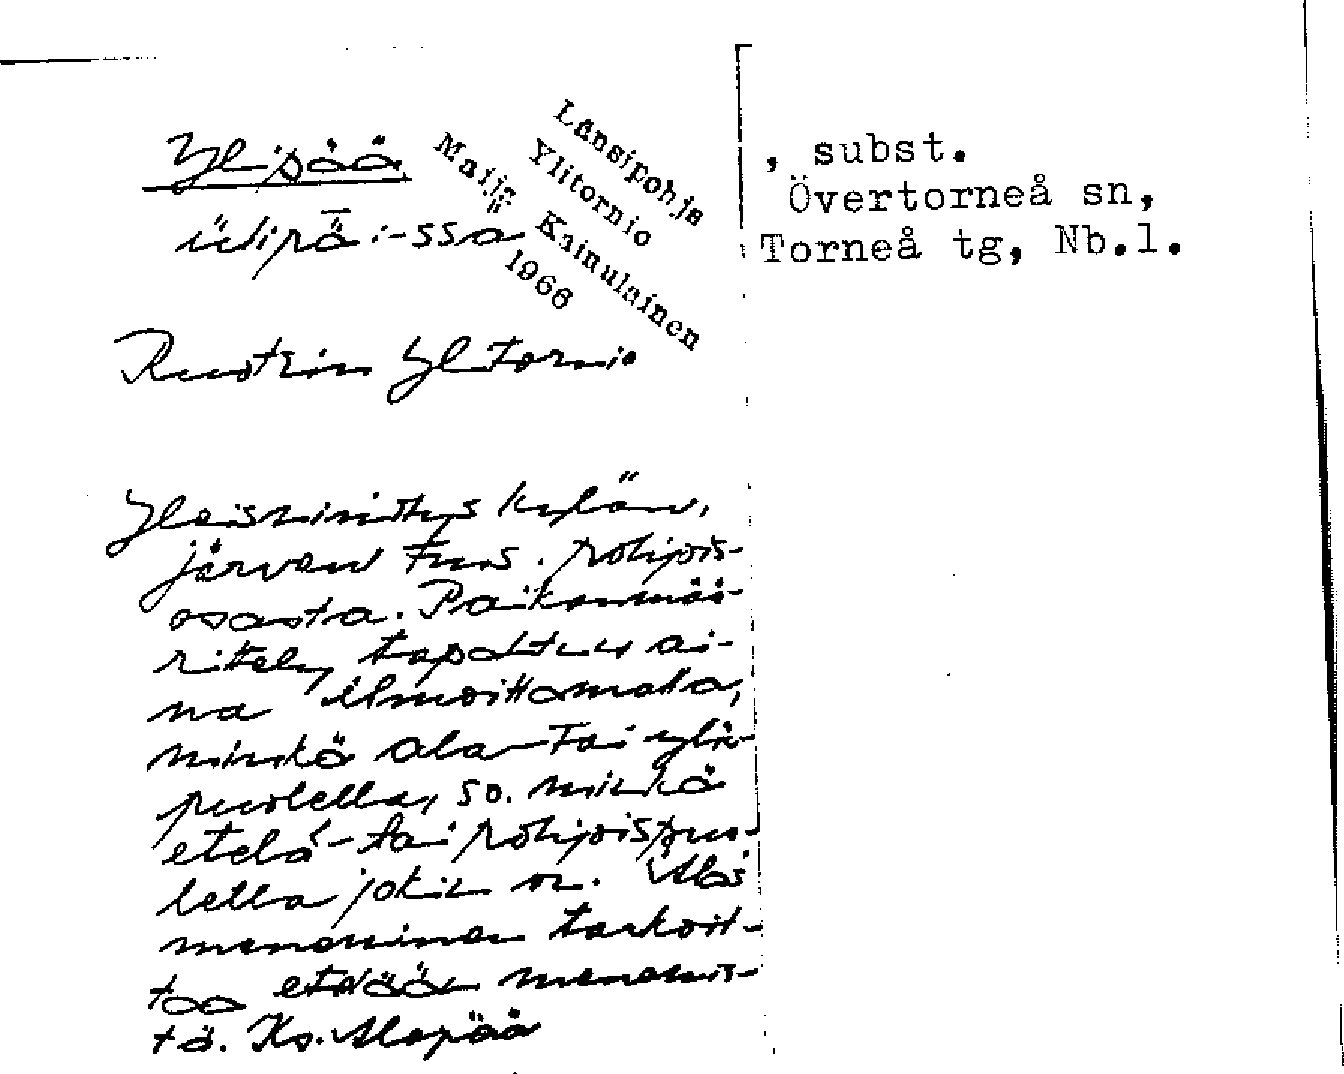 Ylipää
ülipä̅i-ssä
Länsipohja
Ylitornio
Maija Kainulainen
1966
Ruotsin Yl Tornio
Yleisnimitys kylän,
järven yms. pohjois-
osasta. Paikanmää-
rittely tapahtuu ai-
na ilmoittamalla,
minkä ala- tai ylä-
puolella, so. minkä
etelä- tai pohjoispuo-
lella jokin on. Alas
meneminen tarkoit-
taa etelään menemis-
tä. Ks. Alapää
, subst.
Övertorneå sn,
Torneå tg, Nb.l.